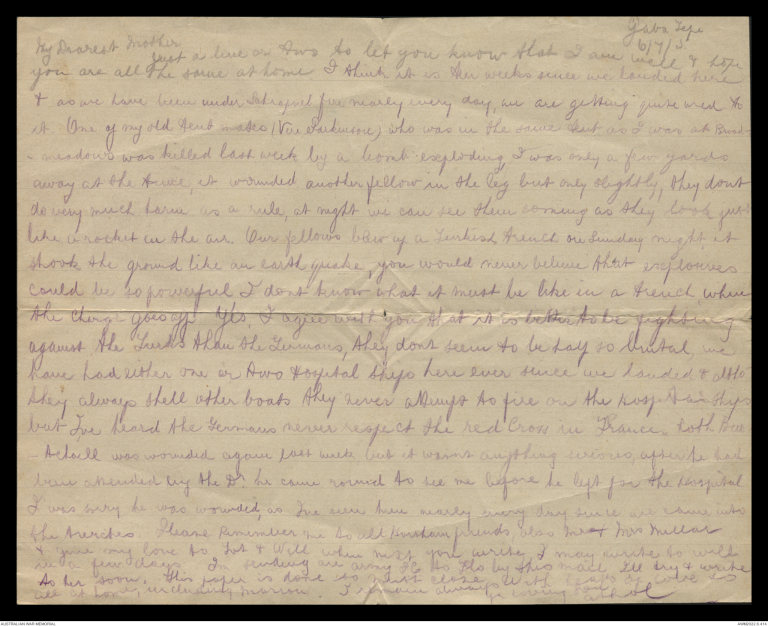 Gaba Tepe
6/7/15
My Dearest Mother
Just a line or two to let you know that I am well & hope
you are all the same at home I think it is ten weeks since we landed here
& as we have been under Shrapnel fire nearly every day, we are getting quite used to
it. One of my old tent mates (Vic Parkinson) who was in the same tent as I was at Broad-
- meadows was killed last week by a bomb exploding, I was only a few yards
away at the time, it wounded another fellow in the leg but only slightly, they dont
do very much harm as a rule, at night we can see them coming as they look just
like a rocket in the air. Our fellows blew up a Turkish trench on Sunday night it
shook the ground like an earth quake, you would never believe that explosives
could be so powerful I dont know what it must be like in a trench when
the charge goes off. Yes, I agree with you that it is better to be fighting
against the Turks than the Germans, they dont seem to be half so brutal, we
have had either one or two Hospital ships here ever since we landed & altho
they always shell other boats they never attempt to fire on the hospital ships
but I've heard the Germans never respect the red Cross in France. Both
was wounded again last week but it wasnt anything serious, after he had
been attended by the Dr. he came round to see me before he left for the Hospital
I was sorry he was wounded, as I've seen him nearly every day since we came into
the trenches. Please Remember me to all Horsham friends, also Mr & Mrs Millar
& give my love to & Will when next you write, I may write to Will
in a few days. I'm sending an army P.C. to Flo by this mail I'll try & write
to her soon. This paper is done so must close With heaps of love to
all at home, including Marion. I remain always your loving son